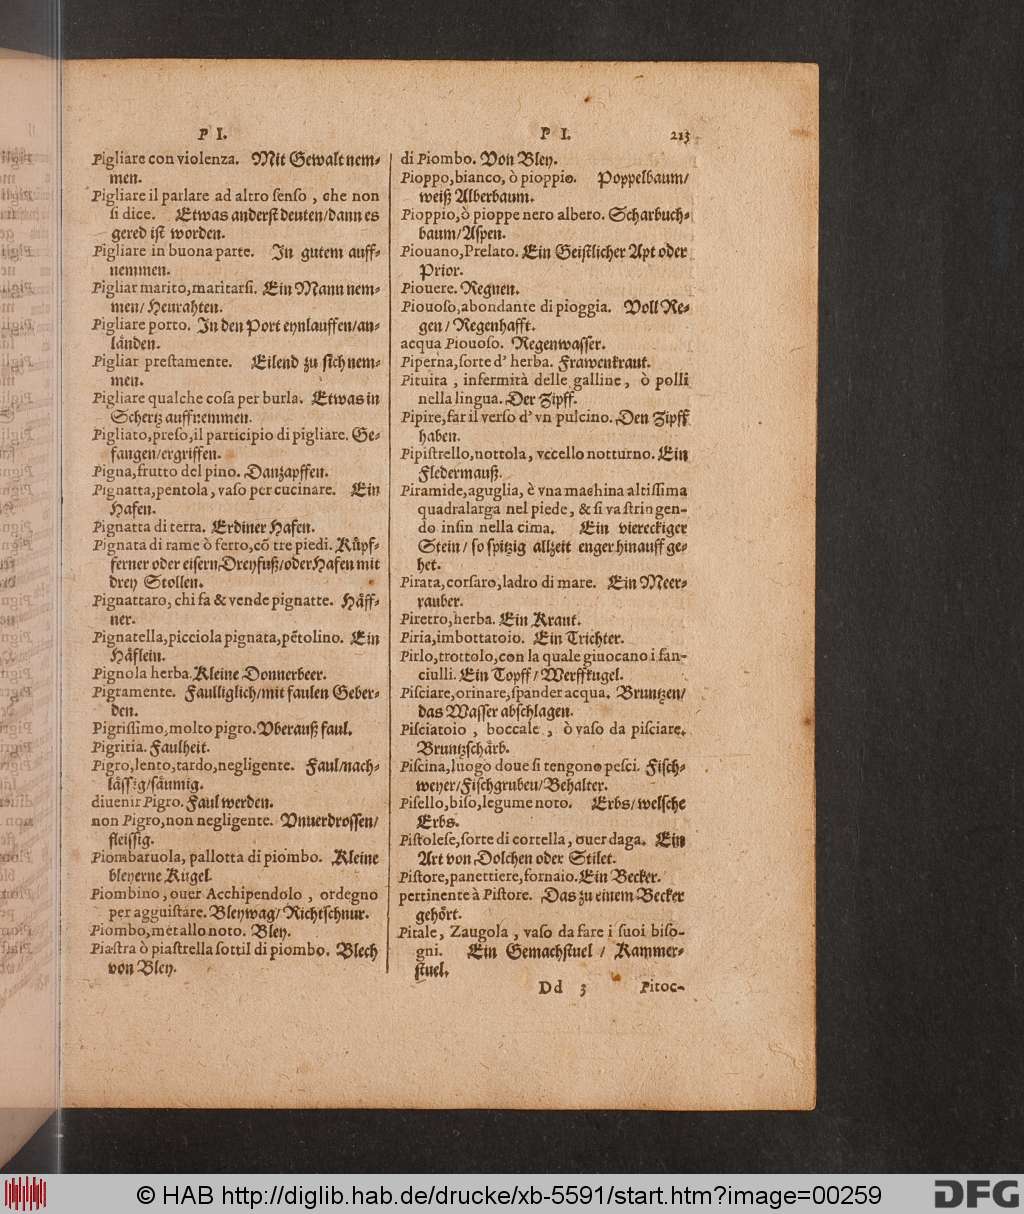 P I.
P I. 213
Pigliare con violenza. Mit Gewalt nem-
men.
Pigliare il parlare ad altro ſenſo, che non
ſi dice. Etwas anderſt deuten/dann es
gered iſt worden.
Pigliare in buona parte. In gutem auff-
nemmen.
Pigliar marito, maritarſi. Ein Mann nem-
men/ Heurahten.
Pigliare porto. In den Port eynlauffen/an-
lånden.
Pigliar preſtamente. Eilend zu ſich nem-
men.
Pigliare qualche coſa per burla. Etwas in
Schertz auffnemmen.
Pigliato, preſo, il participio di pigliare. Ge-
fangen/ergriffen.
Pigna, frutto del pino. Danzapffen.
Pignatta, pentola, vaſo per cucinare. Ein
Hafen.
Pignatta di terra. Erdiner Hafen.
Pignata di rame ò ferro, cõ tre piedi. Kůpf-
ferner oder eiſern Dreyfuß/oder Hafen mit
drey Stollen.
Pignattaro, chi fa & vende pignatte. Håff-
ner.
Pignatella, picciola pignata, pẽtolino. Ein
Håflein.
Pignola herba. Kleine Donnerbeer.
Pigramente. Faulliglich/mit faulen Geber-
den.
Pigriſſimo, molto pigro. Vberauß faul.
Pigritia. Faulheit.
Pigro, lento, tardo, negligente. Faul/nach-
låſſig/ſåumig.
diuenir Pigro. Faul werden.
non Pigro, non negligente. Vnuerdroſſen/
fleiſſig.
Piombaruola, pallotta di piombo. Kleine
bleyerne Kugel.
Piombino, ouer Acchipendolo, ordegno
per agguiſtare. Bleywag/ Richtſchnur.
Piombo, metallo noto. Bley.
Piaſtra ò piaſtrella ſottil di piombo. Blech
von Bley.
di Piombo. Von Bley.
Pioppo, bianco, ò pioppio. Poppelbaum/
weiß Alberbaum.
Pioppio, ò pioppe nero albero. Scharbuch-
baum/Aſpen.
Piouano, Prelato. Ein Geiſtlicher Apt oder
Prior.
Piouere. Regnen.
Piouoſo, abondante di pioggia. Voll Re-
gen/ Regenhafft.
acqua Piouoſo. Regenwaſſer.
Piperna, ſorte d' herba. Frawenkraut.
Pituita, infermità delle galline, ò polli
nella lingua. Der Zipff.
Pipire, far il verſo d' vn pulcino. Den Zipff
haben.
Pipiſtrello, nottola, vccello notturno. Ein
Fledermauß.
Piramide, aguglia, è vna machina altiſſima
quadralarga nel piede, & ſi va ſtringen-
do inſin nella cima. Ein viereckiger
Stein/ ſo ſpitzig allzeit enger hinauff ge-
het.
Pirata, corſaro, ladro di mare. Ein Meer-
rauber.
Piretro, herba. Ein Kraut.
Piria, imbottatoio. Ein Trichter.
Pirlo, trottolo, con la quale giuocano i fan-
ciulli. Ein Topff/ Werffkugel.
Piſciare, orinare, ſpander acqua. Bruntzen/
das Waſſer abſchlagen.
Piſciatoio, boccale, ò vaſo da piſciare.
Bruntzſchårb.
Piſcina, luogo doue ſi tengono peſci. Fiſch-
weyer/Fiſchgruben/Behalter.
Piſello, biſo, legume noto. Erbs/ welſche
Erbs.
Piſtoleſe, ſorte di cortella, ouer daga. Ein
Art von Dolchen oder Stilet.
Piſtore, panettiere, fornaio. Ein Becker.
pertinente à Piſtore. Das zu einem Becker
gehört.
Pitale, Zaugola, vaſo da fare i ſuoi biſo-
gni. Ein Gemachſtuel / Kammer-
ſtuel.
Dd 3 Pitoc-
© HAB http://diglib.hab.de/drucke/xb-5591/start.htm?image=00259
DFG